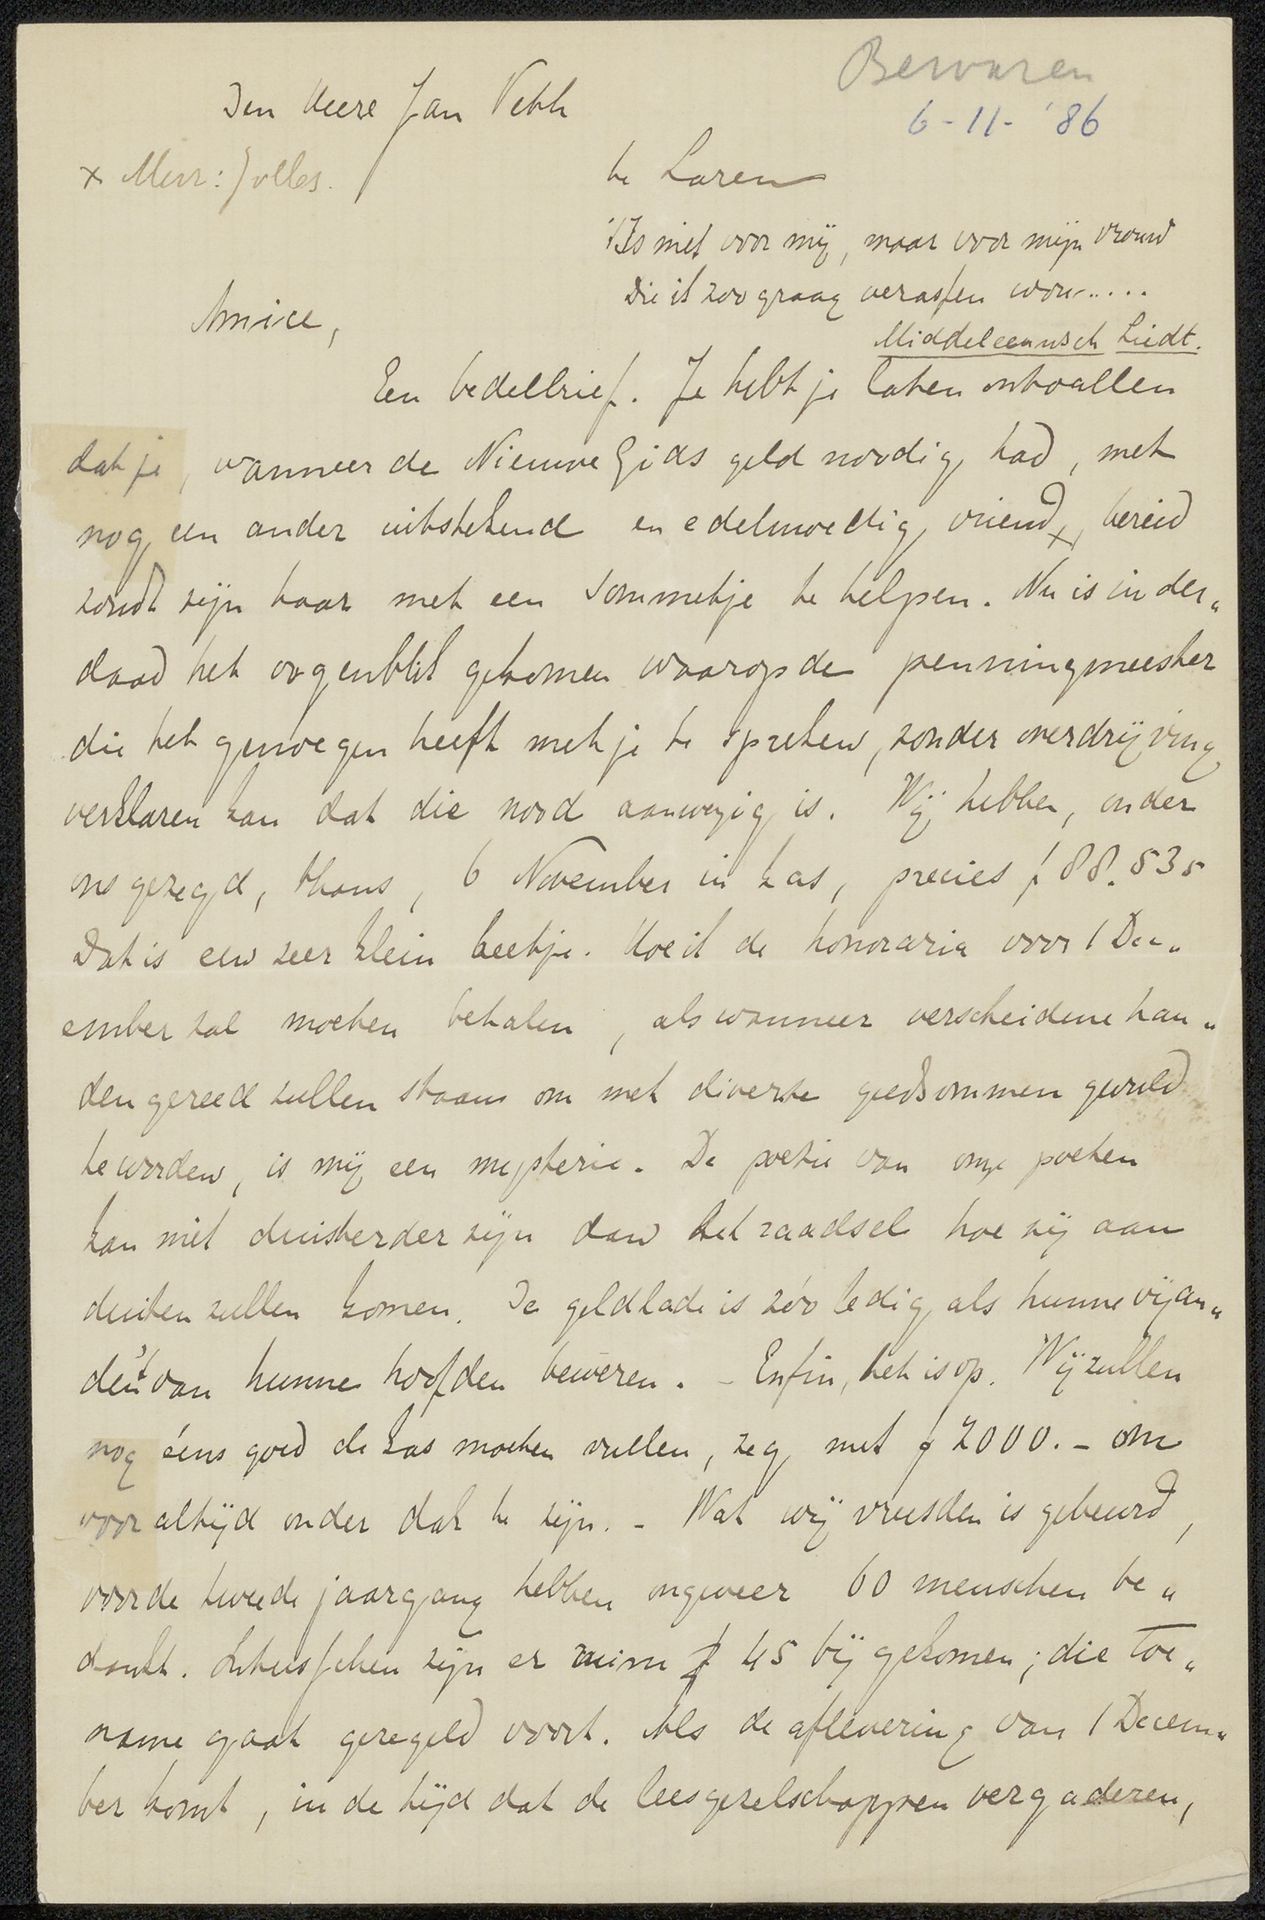 Bewaren
6-11-'86
Den Heere Jan Veth
x Mevr: Jolles.
te Laren
't Is niet voor mij, maar voor mijn vrouw
Die ik zoo graag verassen wou.....
Middeleeuwsch Liedt.
Amice,
Een bedelbrief. Je hebt je laten ontvallen
dat je, wanneer de Nieuwe Gids geld noodig had, met
nog een ander uitstekend en edelmoedig vriend x, bereid
zoudt zijn haar met een sommetje te helpen. Nu is inder„
daad het oogenblik gekomen waarop de penningmeester
die het genoegen heeft met je te spreken, zonder overdrijving
verklaren kan dat die nood aanwezig is. Wij hebben, onder
ons gezegd, thans, 6 November in kas, precies ƒ 88.535
Dat is een zeer klein beetje. Hoe ik de honoraria voor 1 Dec„
ember zal moeten betalen, als wanneer verscheidene han„
den gereed zullen staan om met diverse geldsommen gevuld
te worden, is mij een mysterie. De poëzie van onze poëten
kan niet duisterder zijn dan het raadsel hoe zij aan
duiten zullen komen. De geldlade is zóo ledig als hunne vijan„
den 't van hunne hoofden beweren. - Enfin, het is op. Wij zullen
nog éens goed de kas moeten vullen, zeg met ƒ 2000.- om
voor altijd onder dak te zijn. - Wat wij vreesden is gebeurd,
voor de tweede jaargang hebben ongeveer 60 menschen be„
dankt. Intusschen zijn er ruim 45 bij gekomen; die toe„
name gaat geregeld voort. Als de aflevering van 1 Decem„
ber komt, in de tijd dat de leesgezelschappen vergaderen,